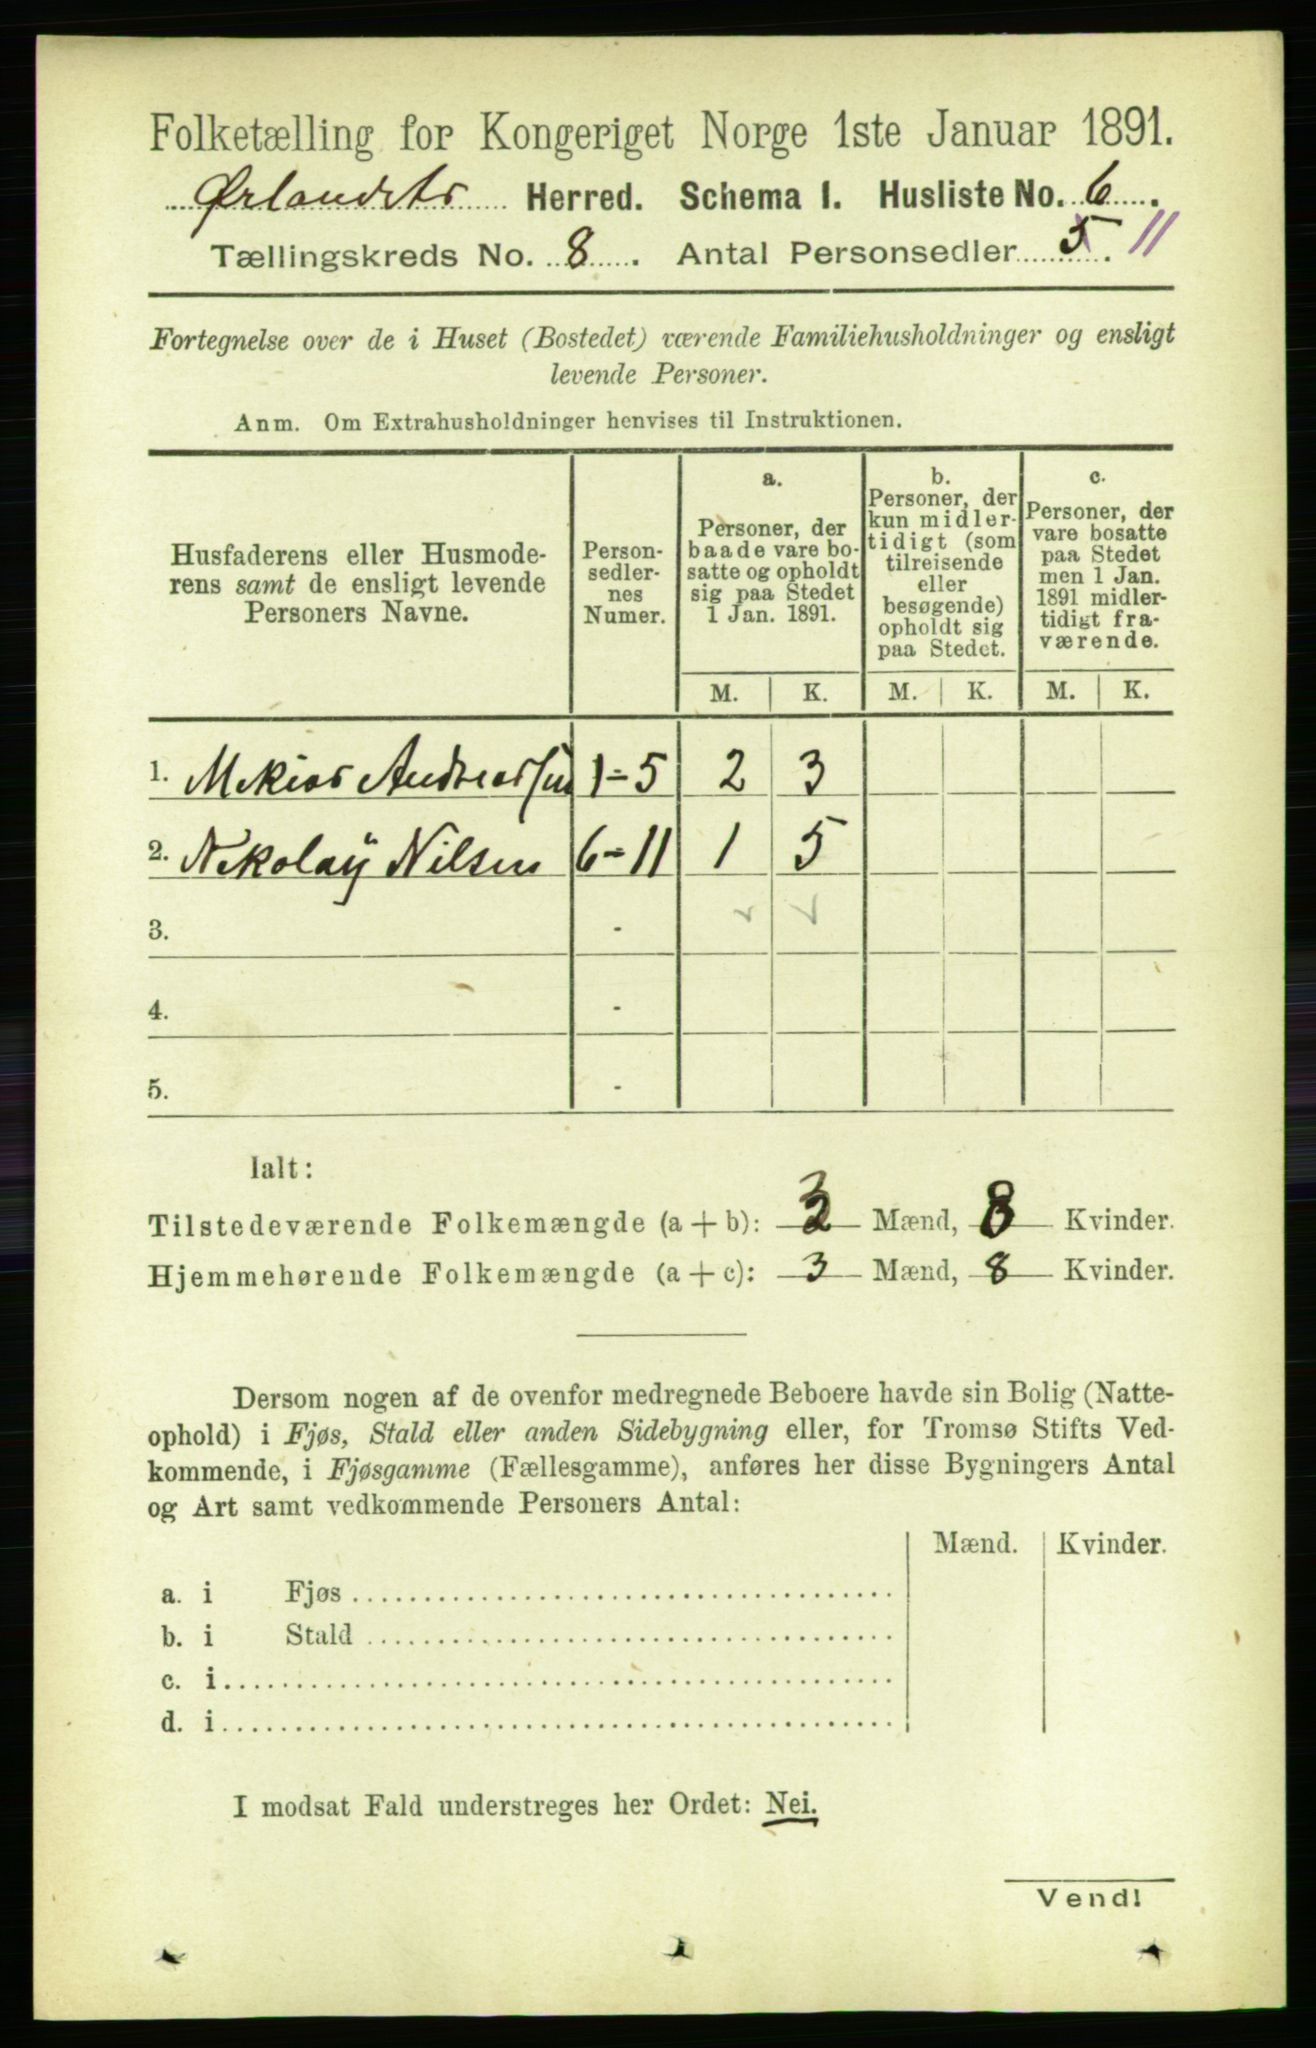 Folketælling for Kongeriget Norge 1ste Januar 1891.
Ørlandets Herred. Schema I. Husliste No. 6.
Tællingskreds No. 8. Antal Personsedler 5. 11
Fortegnelse over de i Huset (Bostedet) værende Familiehusholdninger og ensligt
levende Personer.
Anm. Om Extrahusholdninger henvises til Instruktionen.
Husfaderens eller Husmode-
rens samt de ensligt levende
Personers Navne.
Person-
sedler-
nes
Numer.
a.
Personer, der
baade vare bo-
satte og opholdt
sig paa Stedet
1 Jan. 1891.
b.
Personer, der
kun midler-
tidigt (som
tilreisende
eller
besøgende)
opholdt sig
paa Stedet.
c.
Personer, der
vare bosatte
paa Stedet
men 1 Jan.
1891 midler-
tidigt fra-
værende.
M. K. M. K. M. K.
1. Andreassen 1-5 2 3
2. Nikolay Nilsen 6-11 1 5
3. -
4. -
5. -
Ialt:
Tilstedeværende Folkemængde (a + b): 3 Mænd, 8 Kvinder.
Hjemmehørende Folkemængde (a + c): 3 Mænd, 8 Kvinder.
Dersom nogen af de ovenfor medregnede Beboere havde sin Bolig (Natte-
ophold) i Fjøs, Stald eller anden Sidebygning eller, for Tromsø Stifts Ved-
kommende, i Fjøsgamme (Fællesgamme), anføres her disse Bygningers Antal
og Art samt vedkommende Personers Antal:
Mænd. Kvinder.
a. i Fjøs
b. i Stald
c. i
d. i
I modsat Fald understreges her Ordet: Nei.
Vend!